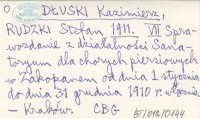 O DŁUSKI Kazimierz,
RUDZKI Stefan 1911. VII Spra-
wozdanie z działalności Sana-
toryum dla chorych piersiowych
w Zakopanem od dnia 1 stycznia
do dnia 31 grudnia 1910 r. włącznie.
- Kraków. CBG